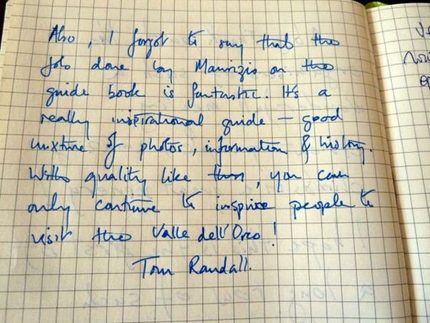 Also, I forgot to say that the
job done by Maurizio on the
guide book is fantastic. It's a
really inspirational guide – good
mixture of photos, information & history.
With quality like this, you can
only continue to inspire people to
visit the Valle dell'Orco!
Tom Randall.